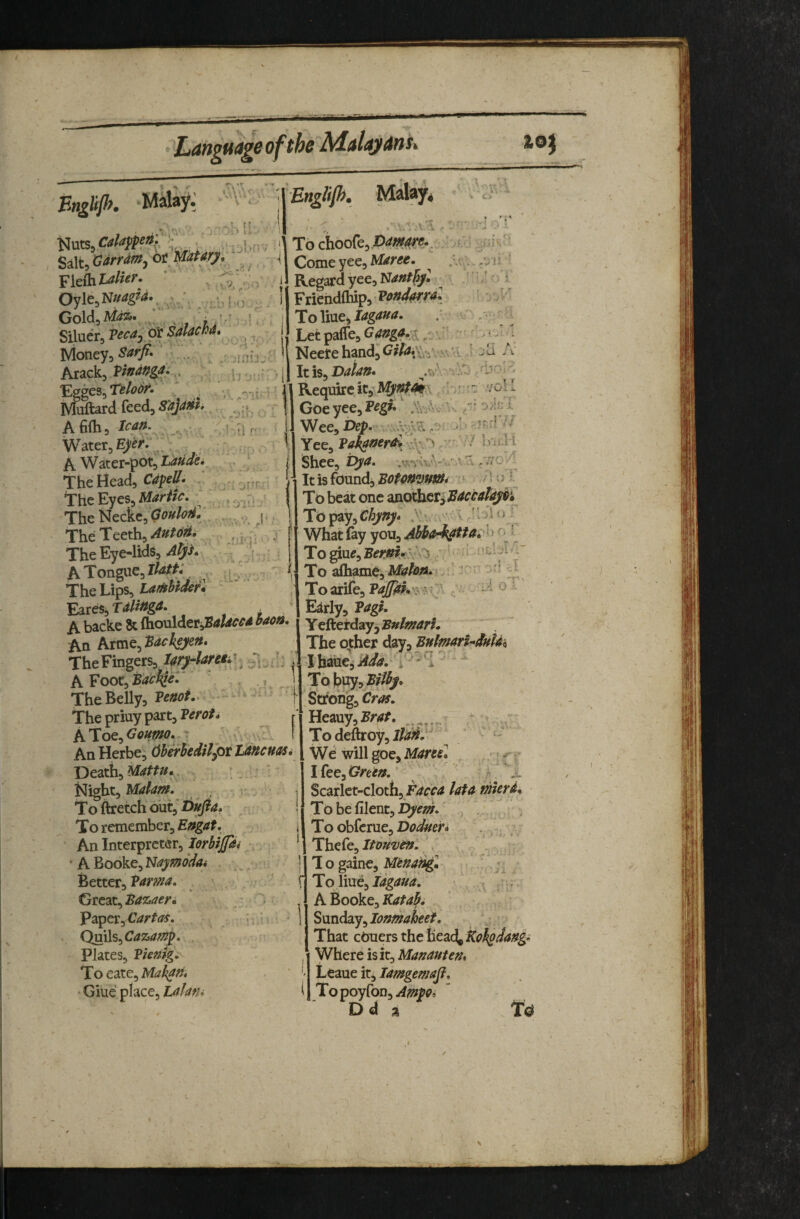 Language of the Malayans.
203
Engliſh. Malay.
Nuts, Calappen.
Salt, Garram, or Matary.
Fleſh Lalier.
Oyle, Nuagia.
Gold, Maz.
Siluer, Peca, or Salacha.
Money, Sarfi.
Arack, Pinanga.
Egges, Teloor.
Muſtard ſeed, Sajani.
A fiſh, Ican.
Water, Eyer.
A Water-pot, Laude.
The Head, Capell.
The Eyes, Martic.
The Necke, Goulon.
The Teeth, Auton.
The Eye-lids, Alys.
A Tongue, Ilatt.
The Lips, Lambider.
Eares, Talinga.
A backe & ſhoulder, Balacca baon.
An Arme, Backeyen.
The Fingers, Iary-laree.
A Foot, Backie.
The Belly, Penot.
The priuy part, Perot.
A Toe, Goumo.
An Herbe, Oberbedil, or Lancuas.
Death, Mattu.
Night, Malam.
To ſtretch out, Duſta.
To remember, Engat.
An Interpreter, Iorbiſſa.
A Booke, Naymoda.
Better, Parma.
Great, Bazaer.
Paper, Cartas.
Quils, Cazamp.
Plates, Pienig.
To eate, Makan.
Giue place, Lalan.
Engliſh. Malay.
To chooſe, Damare.
Come yee, Maree.
Regard yee, Nanthy.
Friendſhip, Pondarra.
To liue, Iagaua.
Let paſſe, Ganga.
Neere hand, Gila.
It is, Dalan.
Require it, Mynta
Goe yee, Pegi.
Wee, Dep.
Yee, Pakanera.
Shee, Dya.
It is found, Botonvum.
To beat one another, Baccalayo.
To pay, Chyny.
What ſay you, Abba-katta.
To giue, Berni.
To aſhame, Malon.
To ariſe, Paſſai.
Early, Pagi.
Yeſterday, Bulmari.
The other day, Bulmari-dula.
I haue, Ada.
To buy, Bilby.
Strong, Cras.
Heauy, Brat.
To deſtroy, Ilan.
We will goe, Maree.
I ſee, Green.
Scarlet-cloth, Facca lata miera.
To be ſilent, Dyem.
To obſerue, Doduer.
Theſe, Itouven.
To gaine, Menang.
To liue, Iagaua.
A Booke, Katab.
Sunday, Ionmaheet.
That couers the head, Kokodang.
Where is it, Manauten.
Leaue it, Iamgemaſt.
To poyſon, Ampo.
D d 2
To